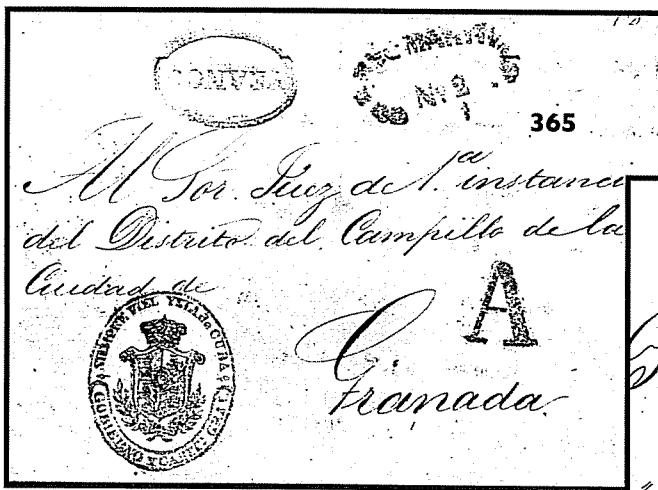 Nº 2
365
Al Sor. Juez de 1.ª instanci
del Distrito del Campillo de la
Ciudad de
A
Granada
SIEMPRE FIEL YSLA DE CUBA
GOBIERNO